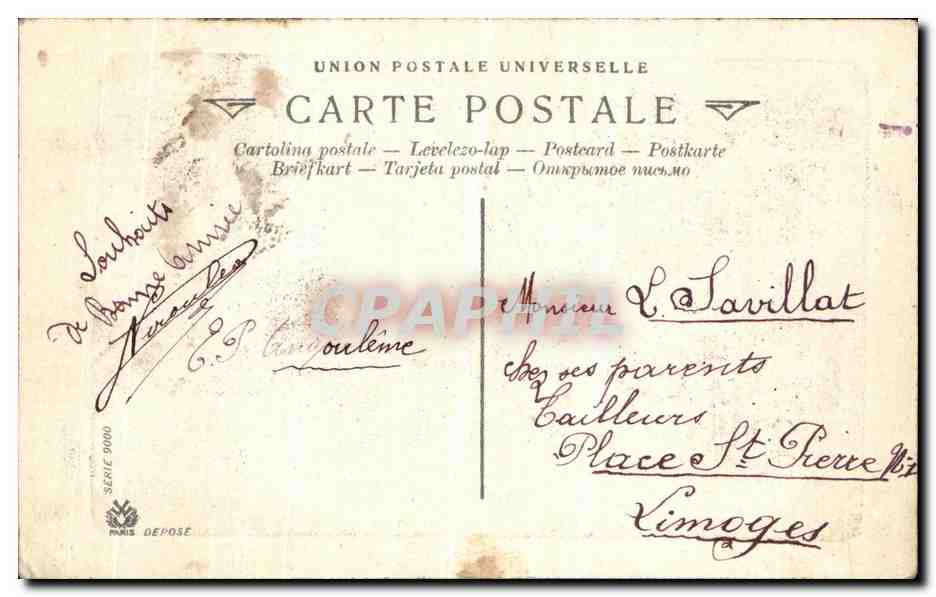 UNION POSTALE UNIVERSELLE
CARTE POSTALE
Cartolina postale — Levelezo-lap — Postcard — Postkarte
Briefkart — Tarjeta postal — Открытое письмо
Souhaits
de Bonne Année
E. P. Angoulême
Monsieur L. Savillat
chez ses parents
Tailleurs
Place St Pierre N-1
Limoges
CPAPHIL
SÉRIE 9000
PARIS DEPOSÉ